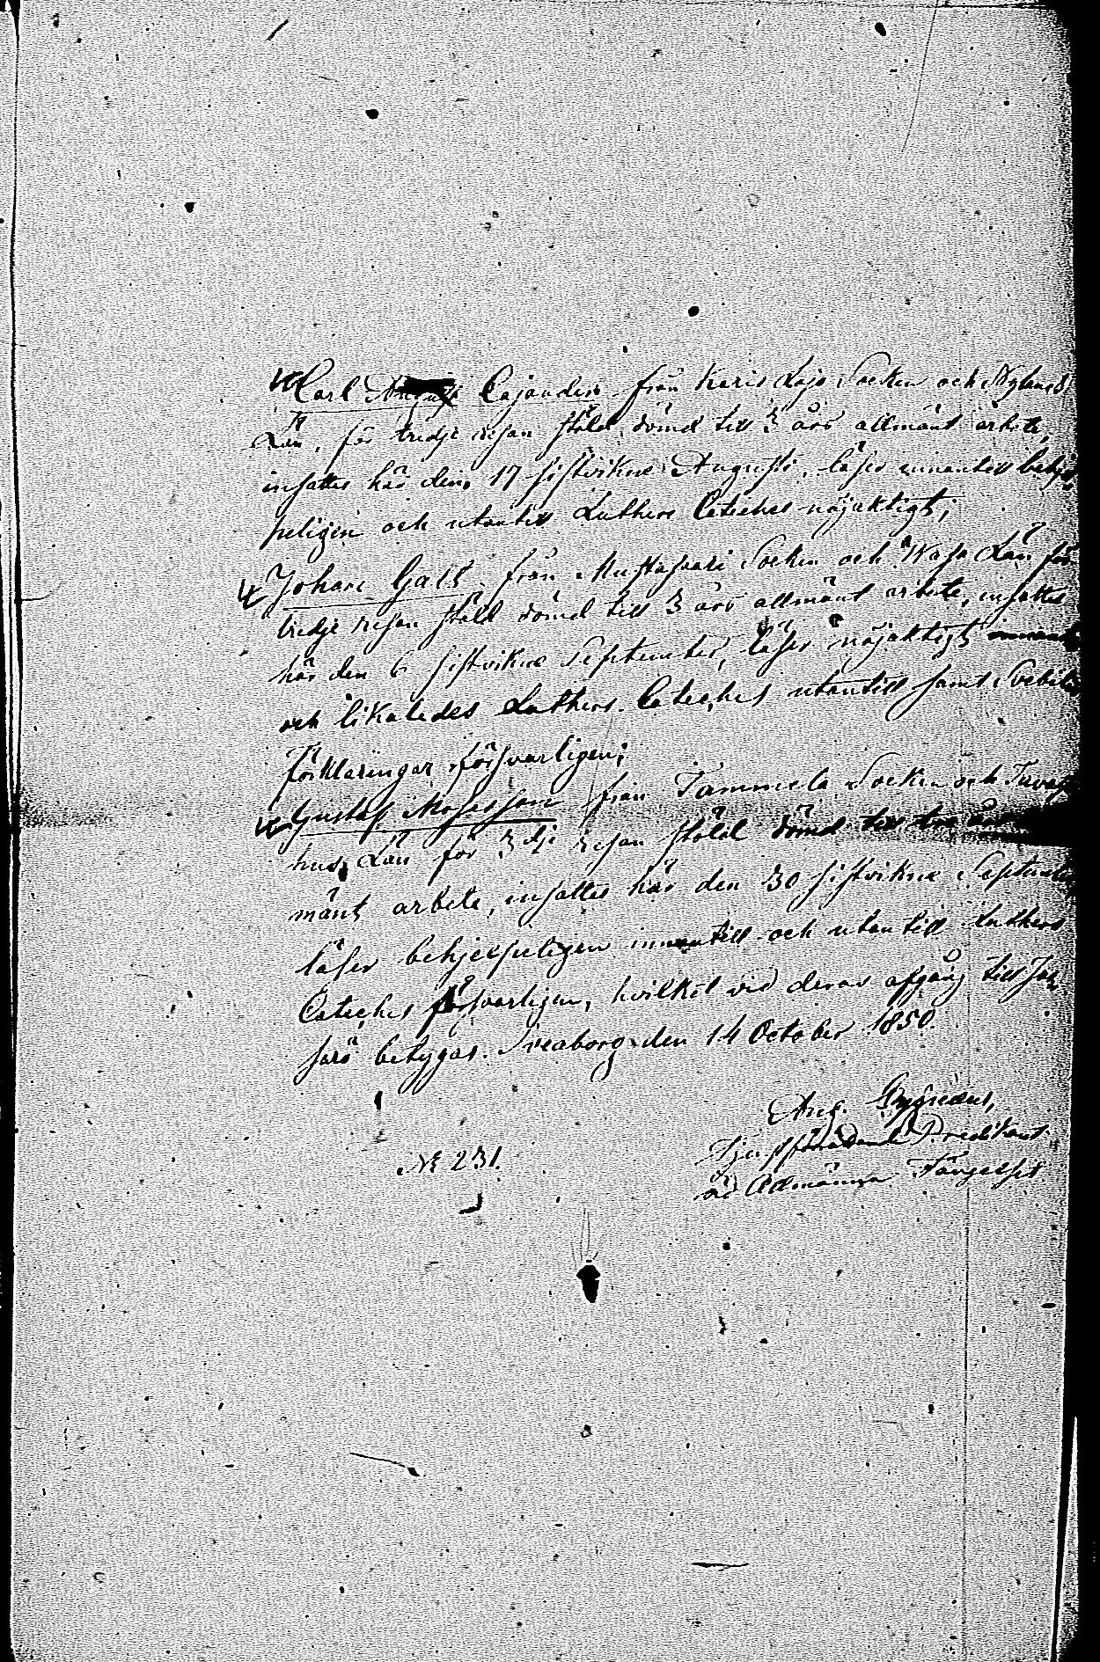 Carl August Cajander från Karis Lojo Socken och Nylands
Län, för tredje resan stöld dömd till 3 års allmänt arbete,
insattes här den 17 sistvikne Augusti, läser innantill behje
peligen och utantill Luthers Cateches nöjaktigt;
Johan Galt från Mustasaari Socken och Wasa Län för
tredje resan stöld dömd till 3 års allmänt arbete, insattes
här den 6 sistvikne September, läser nöjaktigt innantill
och likaledes Luthers Cateches utantill samt Svebilii
förklaringar försvarligen;
Gustaf Mosesson från Tammela Socken och Tavast
hus Län för 3dje resan stöld dömd till tre års
mänt arbete, insattes här den 30 sistvikne September
läser behjelpeligen innantill och utantill Luthers
Cateches försvarligen, hvilket vid deras afgång till
betygas. Sveaborg den 14 October 1850.
Aug.
Tjenstförrättande Predikant
vid Allmänna Fängelset
№ 231.